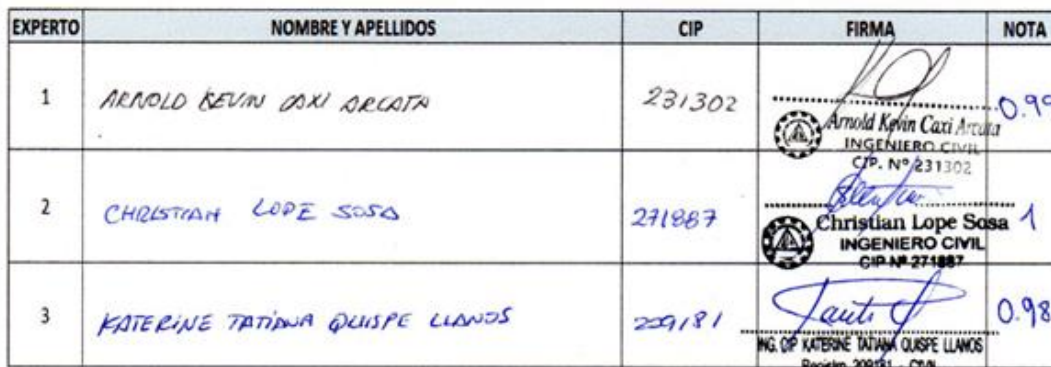 EXPERTO NOMBRE Y APELLIDOS CIP FIRMA NOTA
1 ARNOLD KEVIN CAXI ARCATA 231302 0.99
Arnold Kevin Caxi Arcata
INGENIERO CIVIL
CIP. Nº 231302
2 CHRISTIAN LOPE SOSA 271887 1
Christian Lope Sosa
INGENIERO CIVIL
CIP Nº 271887
3 KATERINE TATIANA QUISPE LLANOS 209181 0.98
ING. CIP KATERINE TATIANA QUISPE LLANOS
Registro 209181 - CIVIL